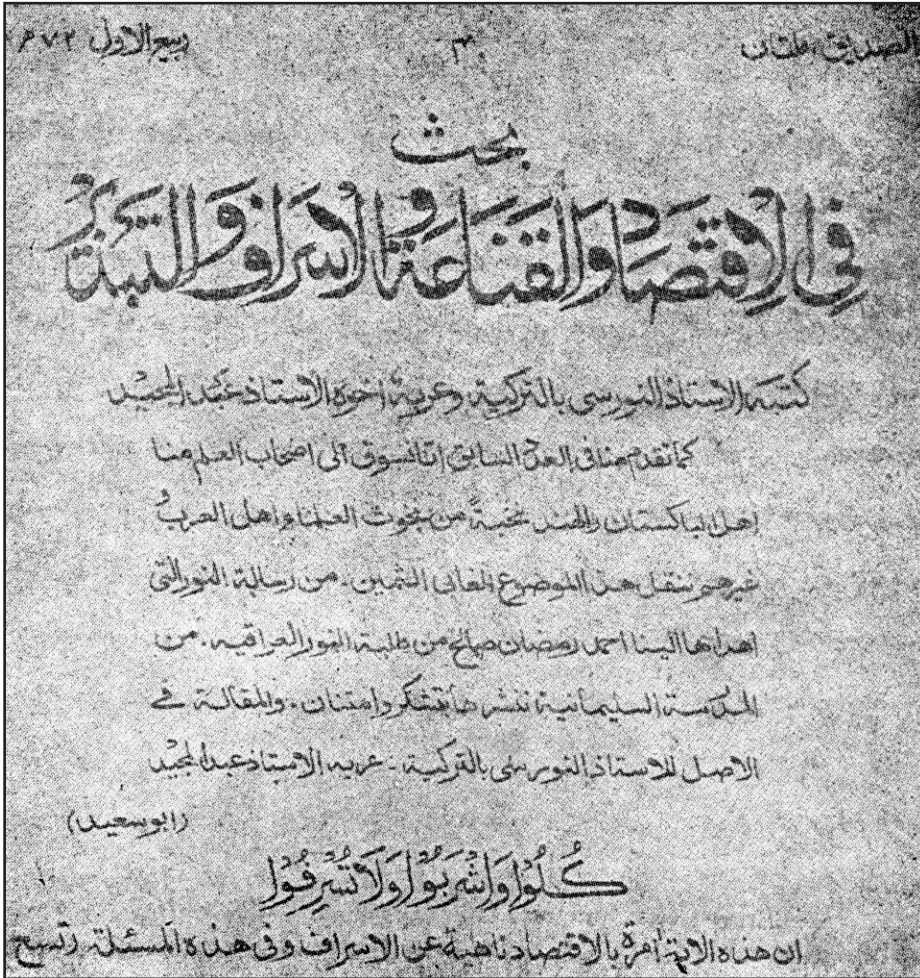 الصديق، ملتان ٣ ربيع الاول ٧٣ ھ
بحث
فِي الِاقتصَادِ وَالقَنَاعَةِ وَالاِسَرافِ وَالتبَذِيرُ
كتبه الاستاذ النورسى بالتركية وعربه اخوه الاستاذ عبد المجيد
كما تقدم منا فى العدد السابق اننا نسوق الى اصحاب العلم منا
اهل الباكستان والهند نخبةً من بحوث العلماء اهل العرب و
غيرهم ننقل هذا الموضوع الغالى الثمين۔ من رسالة النور التى
اهداها الينا احمد رمضان صالح من طلبة النور العراقيه۔ من
المدرسة السليمانية ننشرها بتشكر وامتنان۔ والمقالة فے
الاصل للاستاذ النورسى بالتركية۔ عربه الاستاذ عبدالمجيد
(ابو سعيد)
كُلُوْا وَاشْرَبُوْا وَلَا تُسْرِفُوْا
ان هذه الاية آمرة بالاقتصاد ناهية عن الاسراف وفى هذه المسئلة تسع